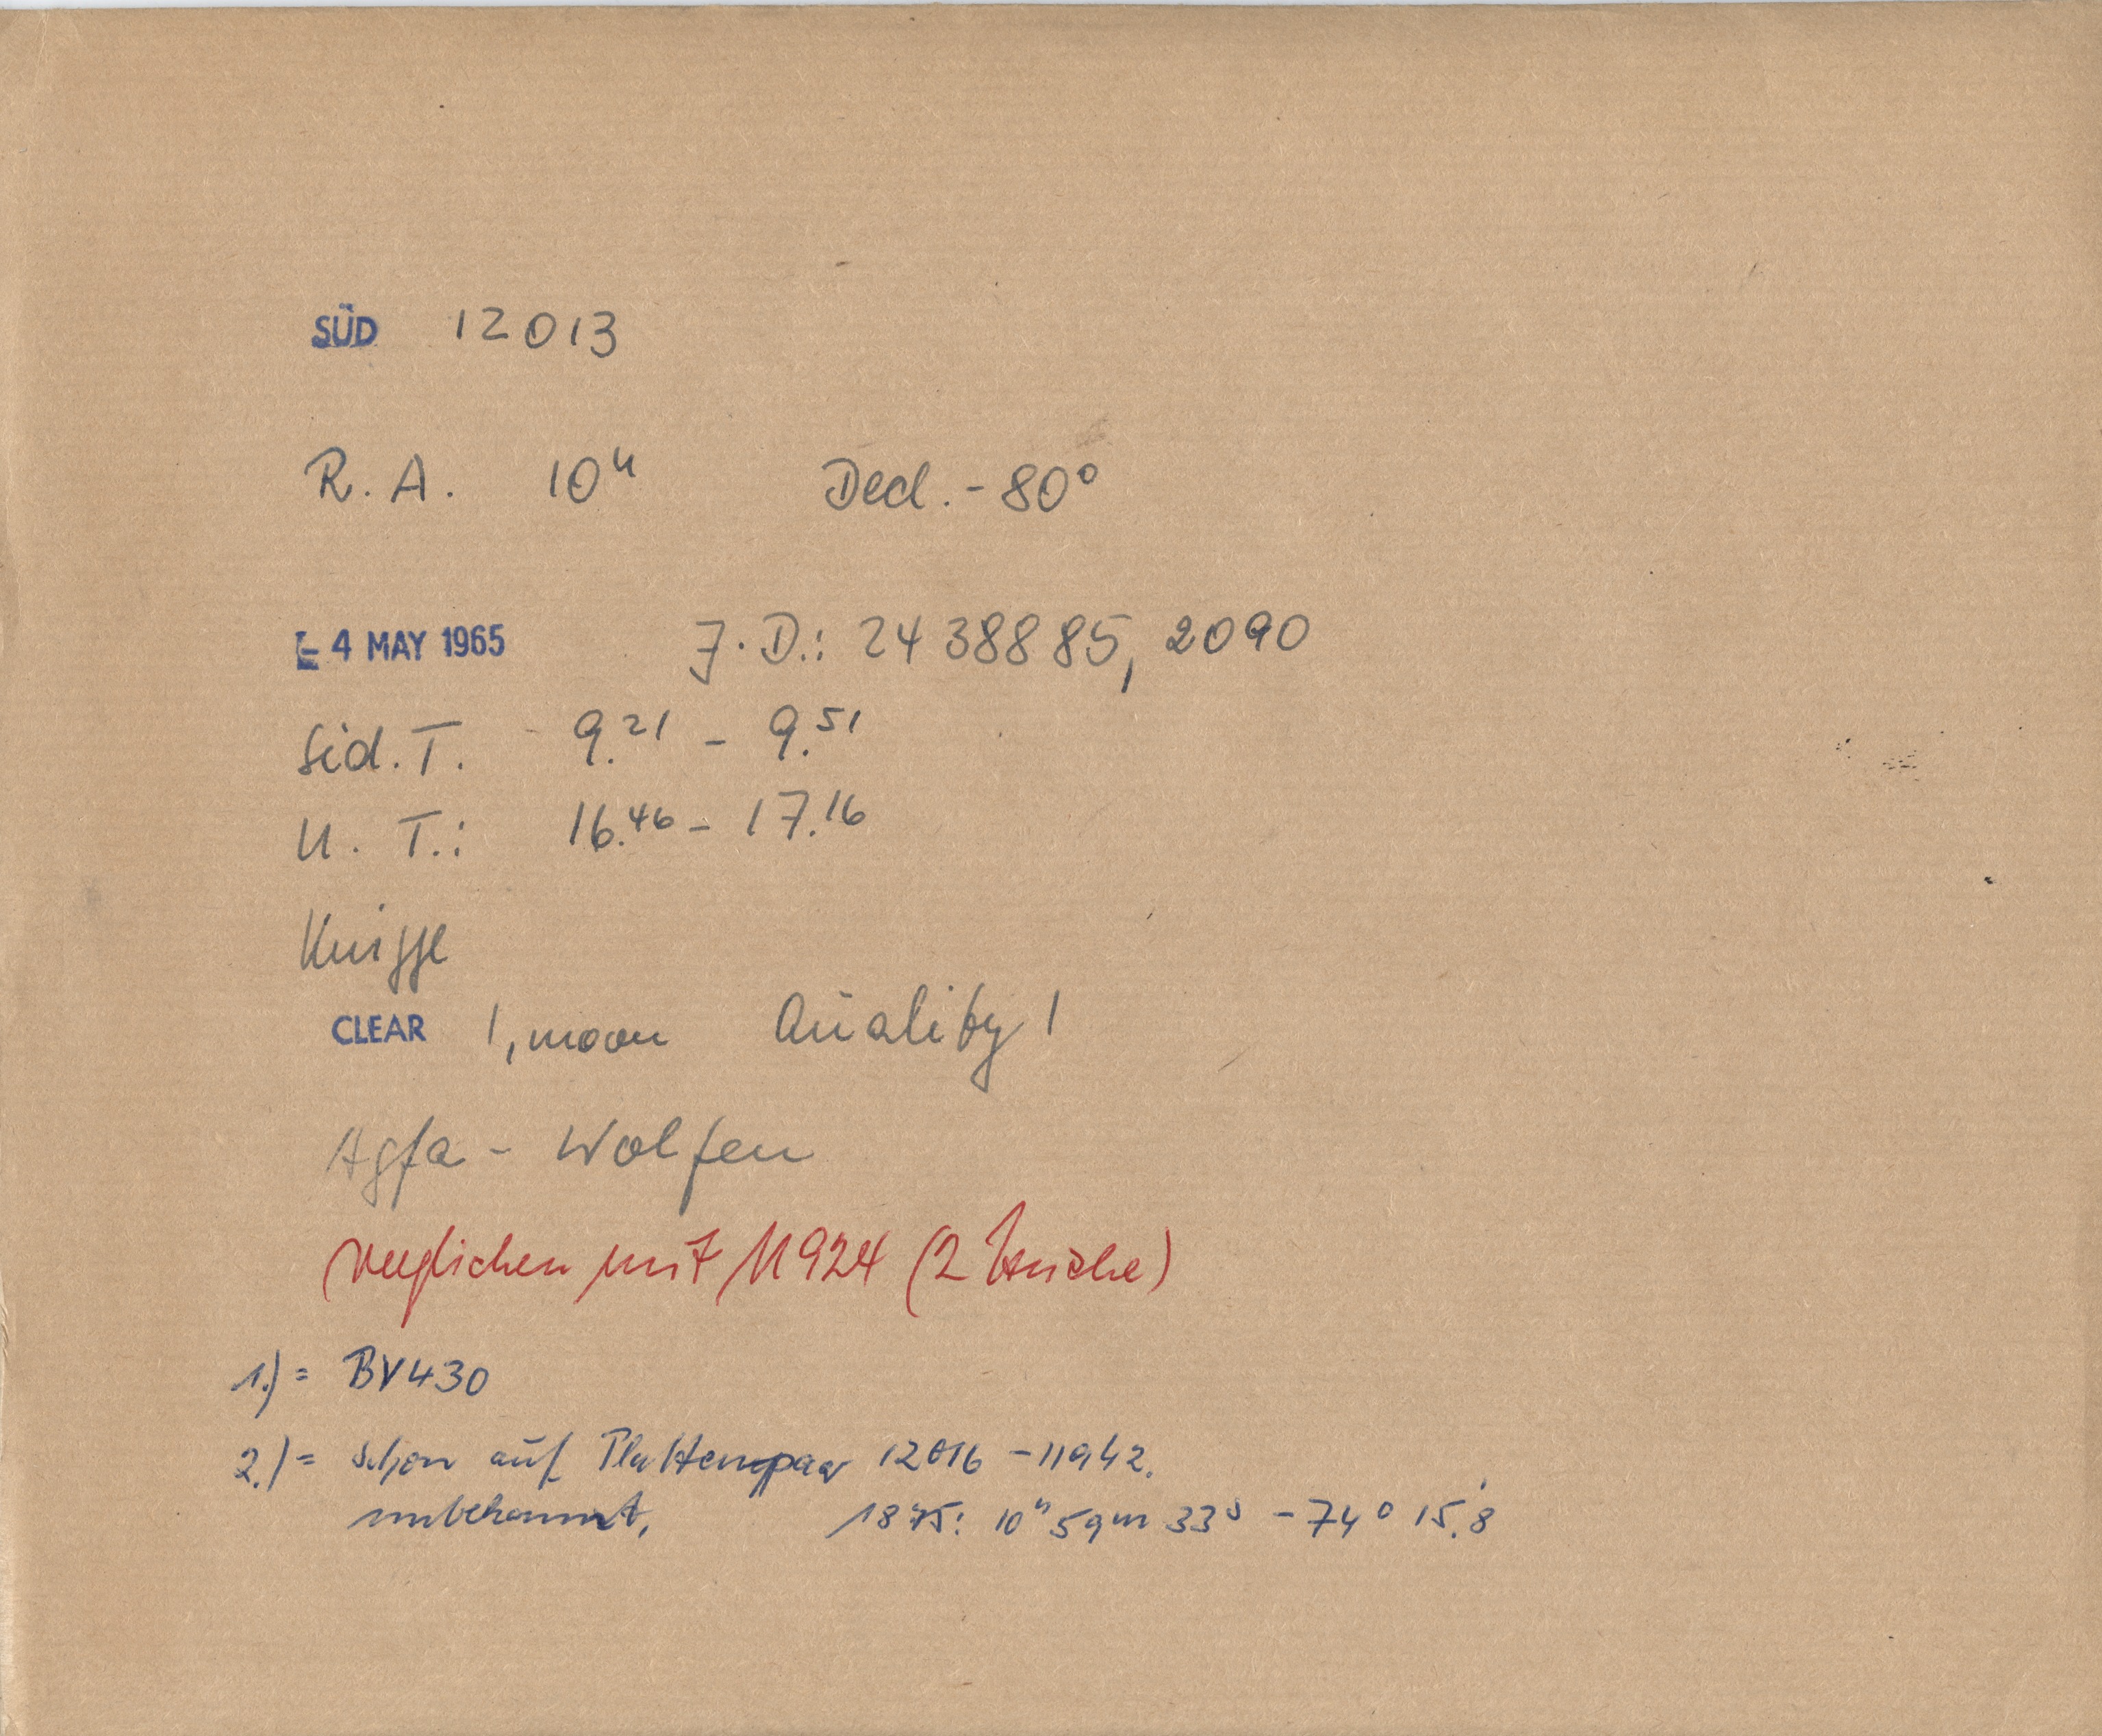 SÜD 12013
R. A. 10ʰ Decl. - 80°
- 4 MAY 1965 J. D.: 2438885, 2090
Sid. T. 9.²¹ - 9.⁵¹
U. T.: 16.⁴⁶ - 17.¹⁶
Knigge
CLEAR 1, moon Quality 1
Agfa - Wolfen
verglichen mit 11924 (2 Striche)
1.) = BV430
2.) = schon auf Plattenpaar 12016 - 11942.
unbekannt, 1875: 10ʰ 59ᵐ 33ˢ - 74° 15.'8